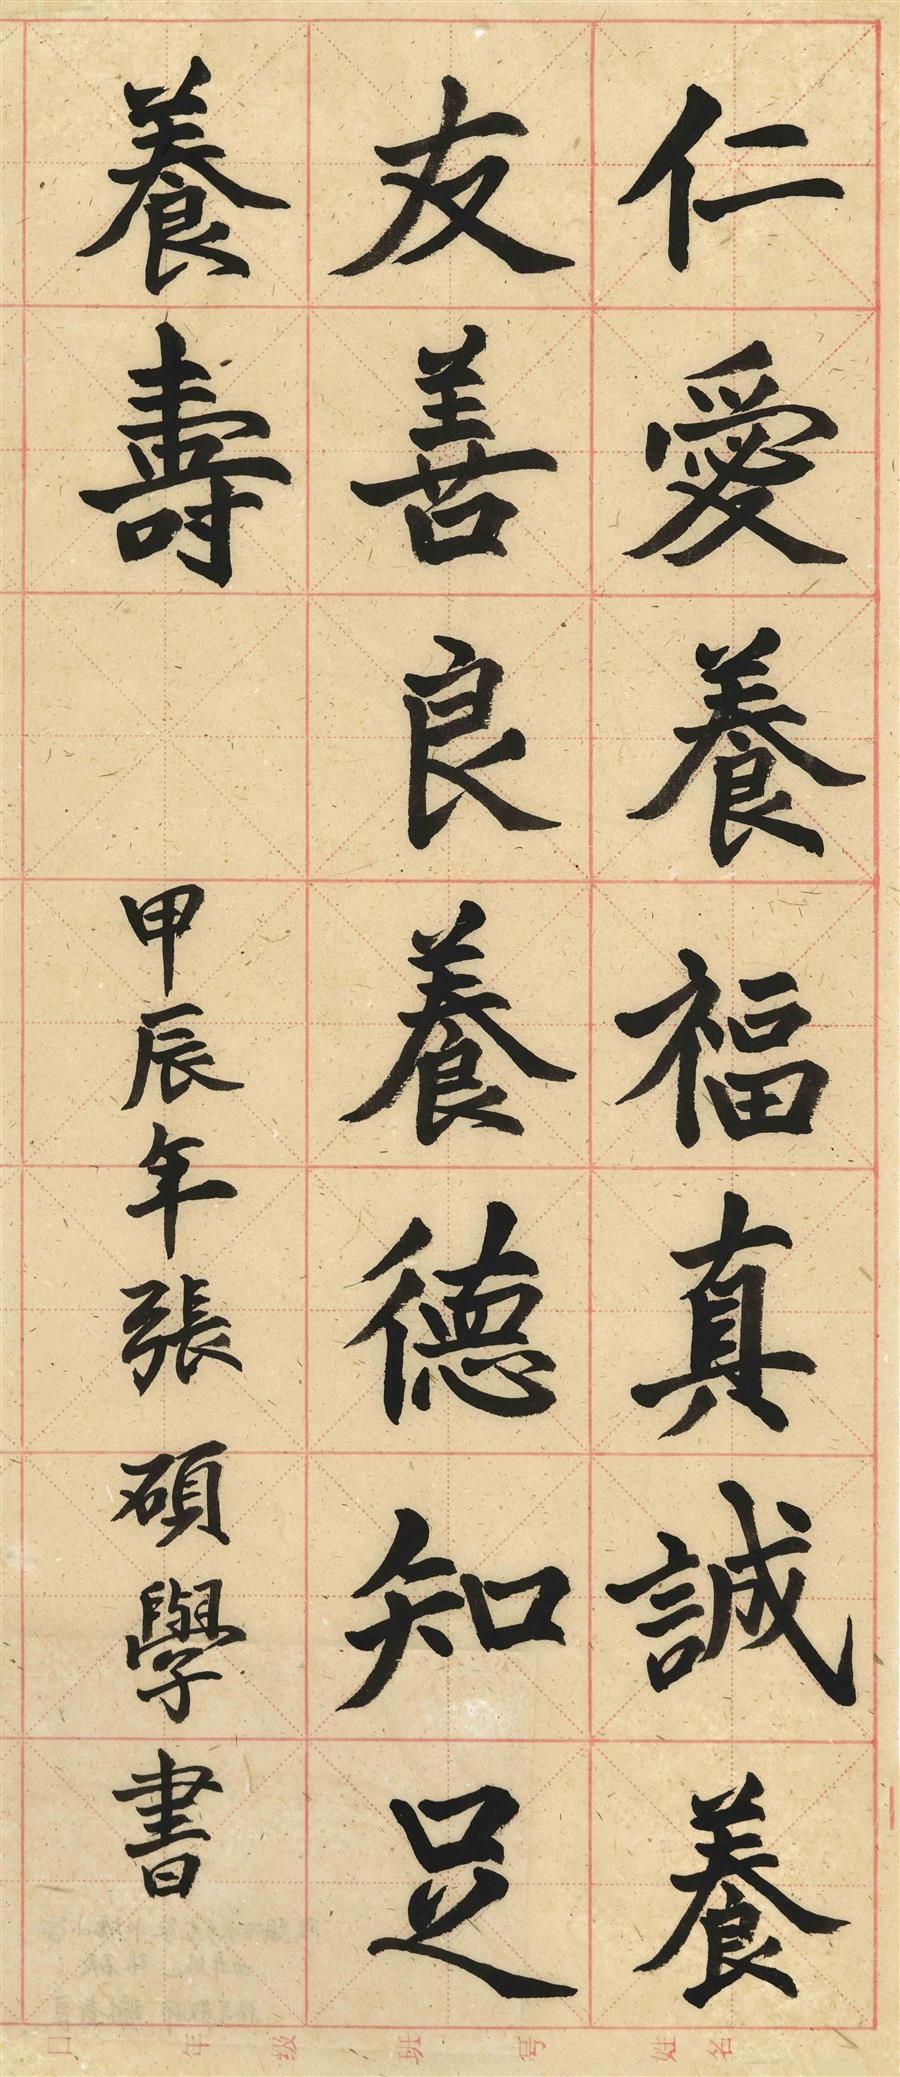 仁愛養福真誠養
友善良養德知足
養壽
甲辰年張碩學書
姓名 号 班 级 年 日